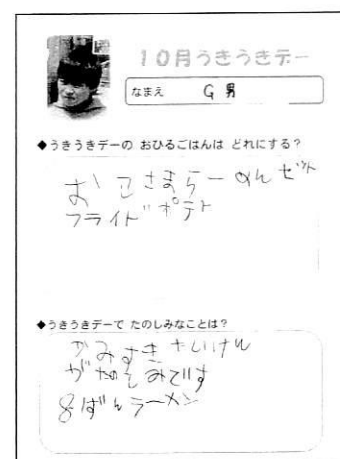 10月うきうきデー
なまえ G男
◆うきうきデーの おひるごはんは どれにする?
おこさまらーめんセット
フライドポテト
◆うきうきデーで たのしみなことは?
かみすきたいけん
がたのしみです
8ばんラーメン